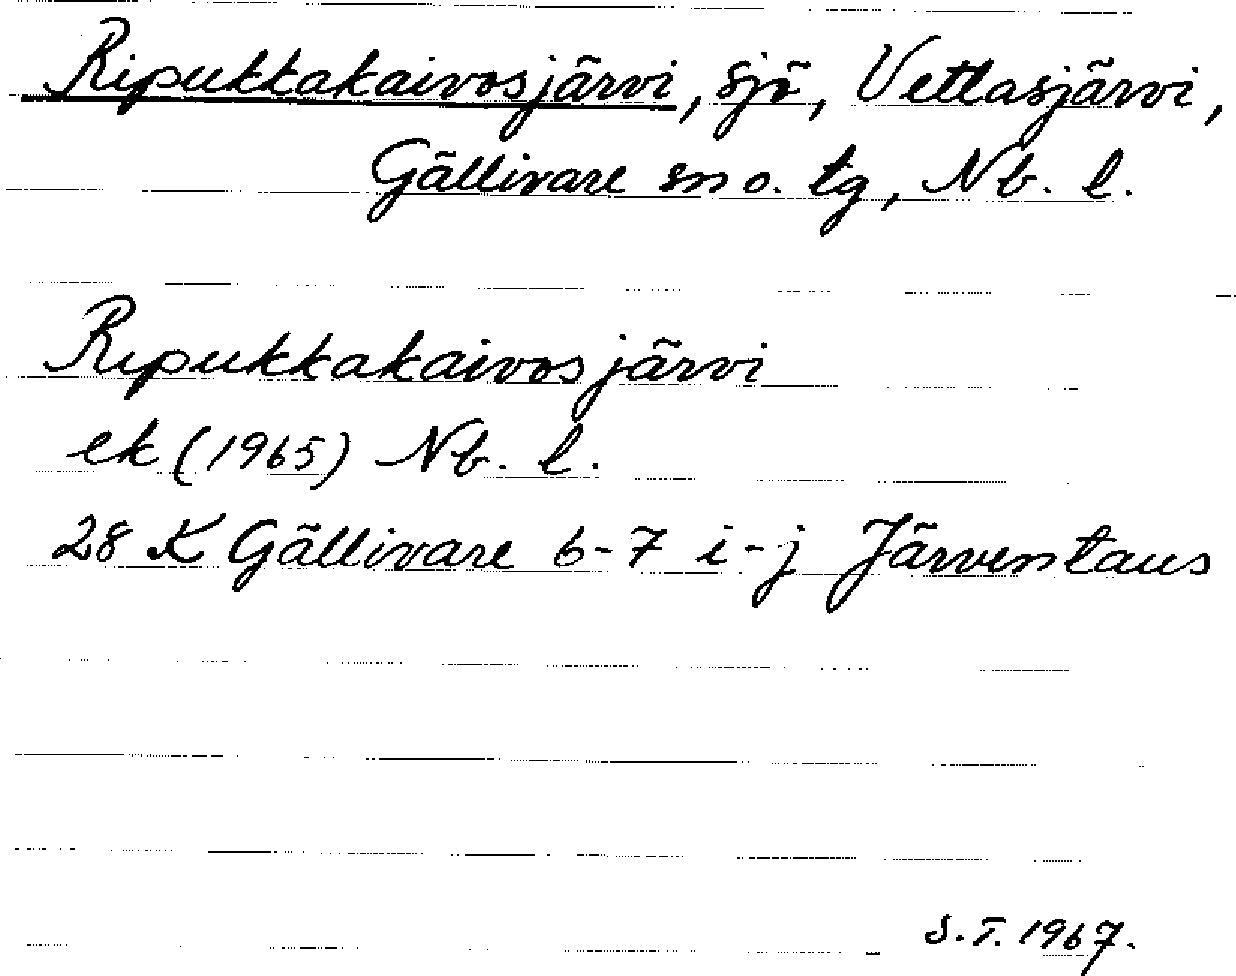 Ripukkakaivosjärvi, sjö, Vettasjärvi,
Gällivare sn o. tg, Nb. l.
Ripukkakaivosjärvi
ek (1965) Nb. l.
28 K Gällivare 6-7 i-j Järventaus
S.T. 1967.